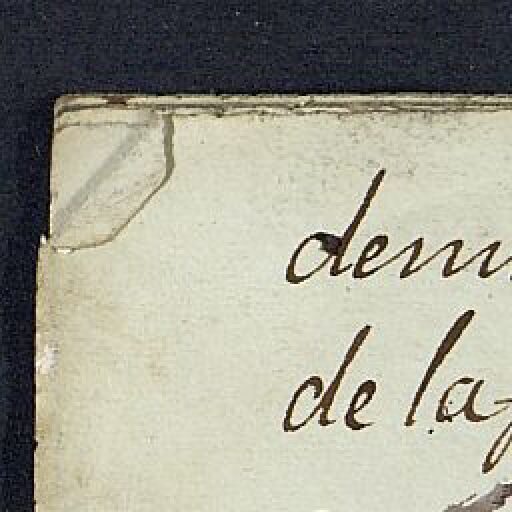 dem
de la